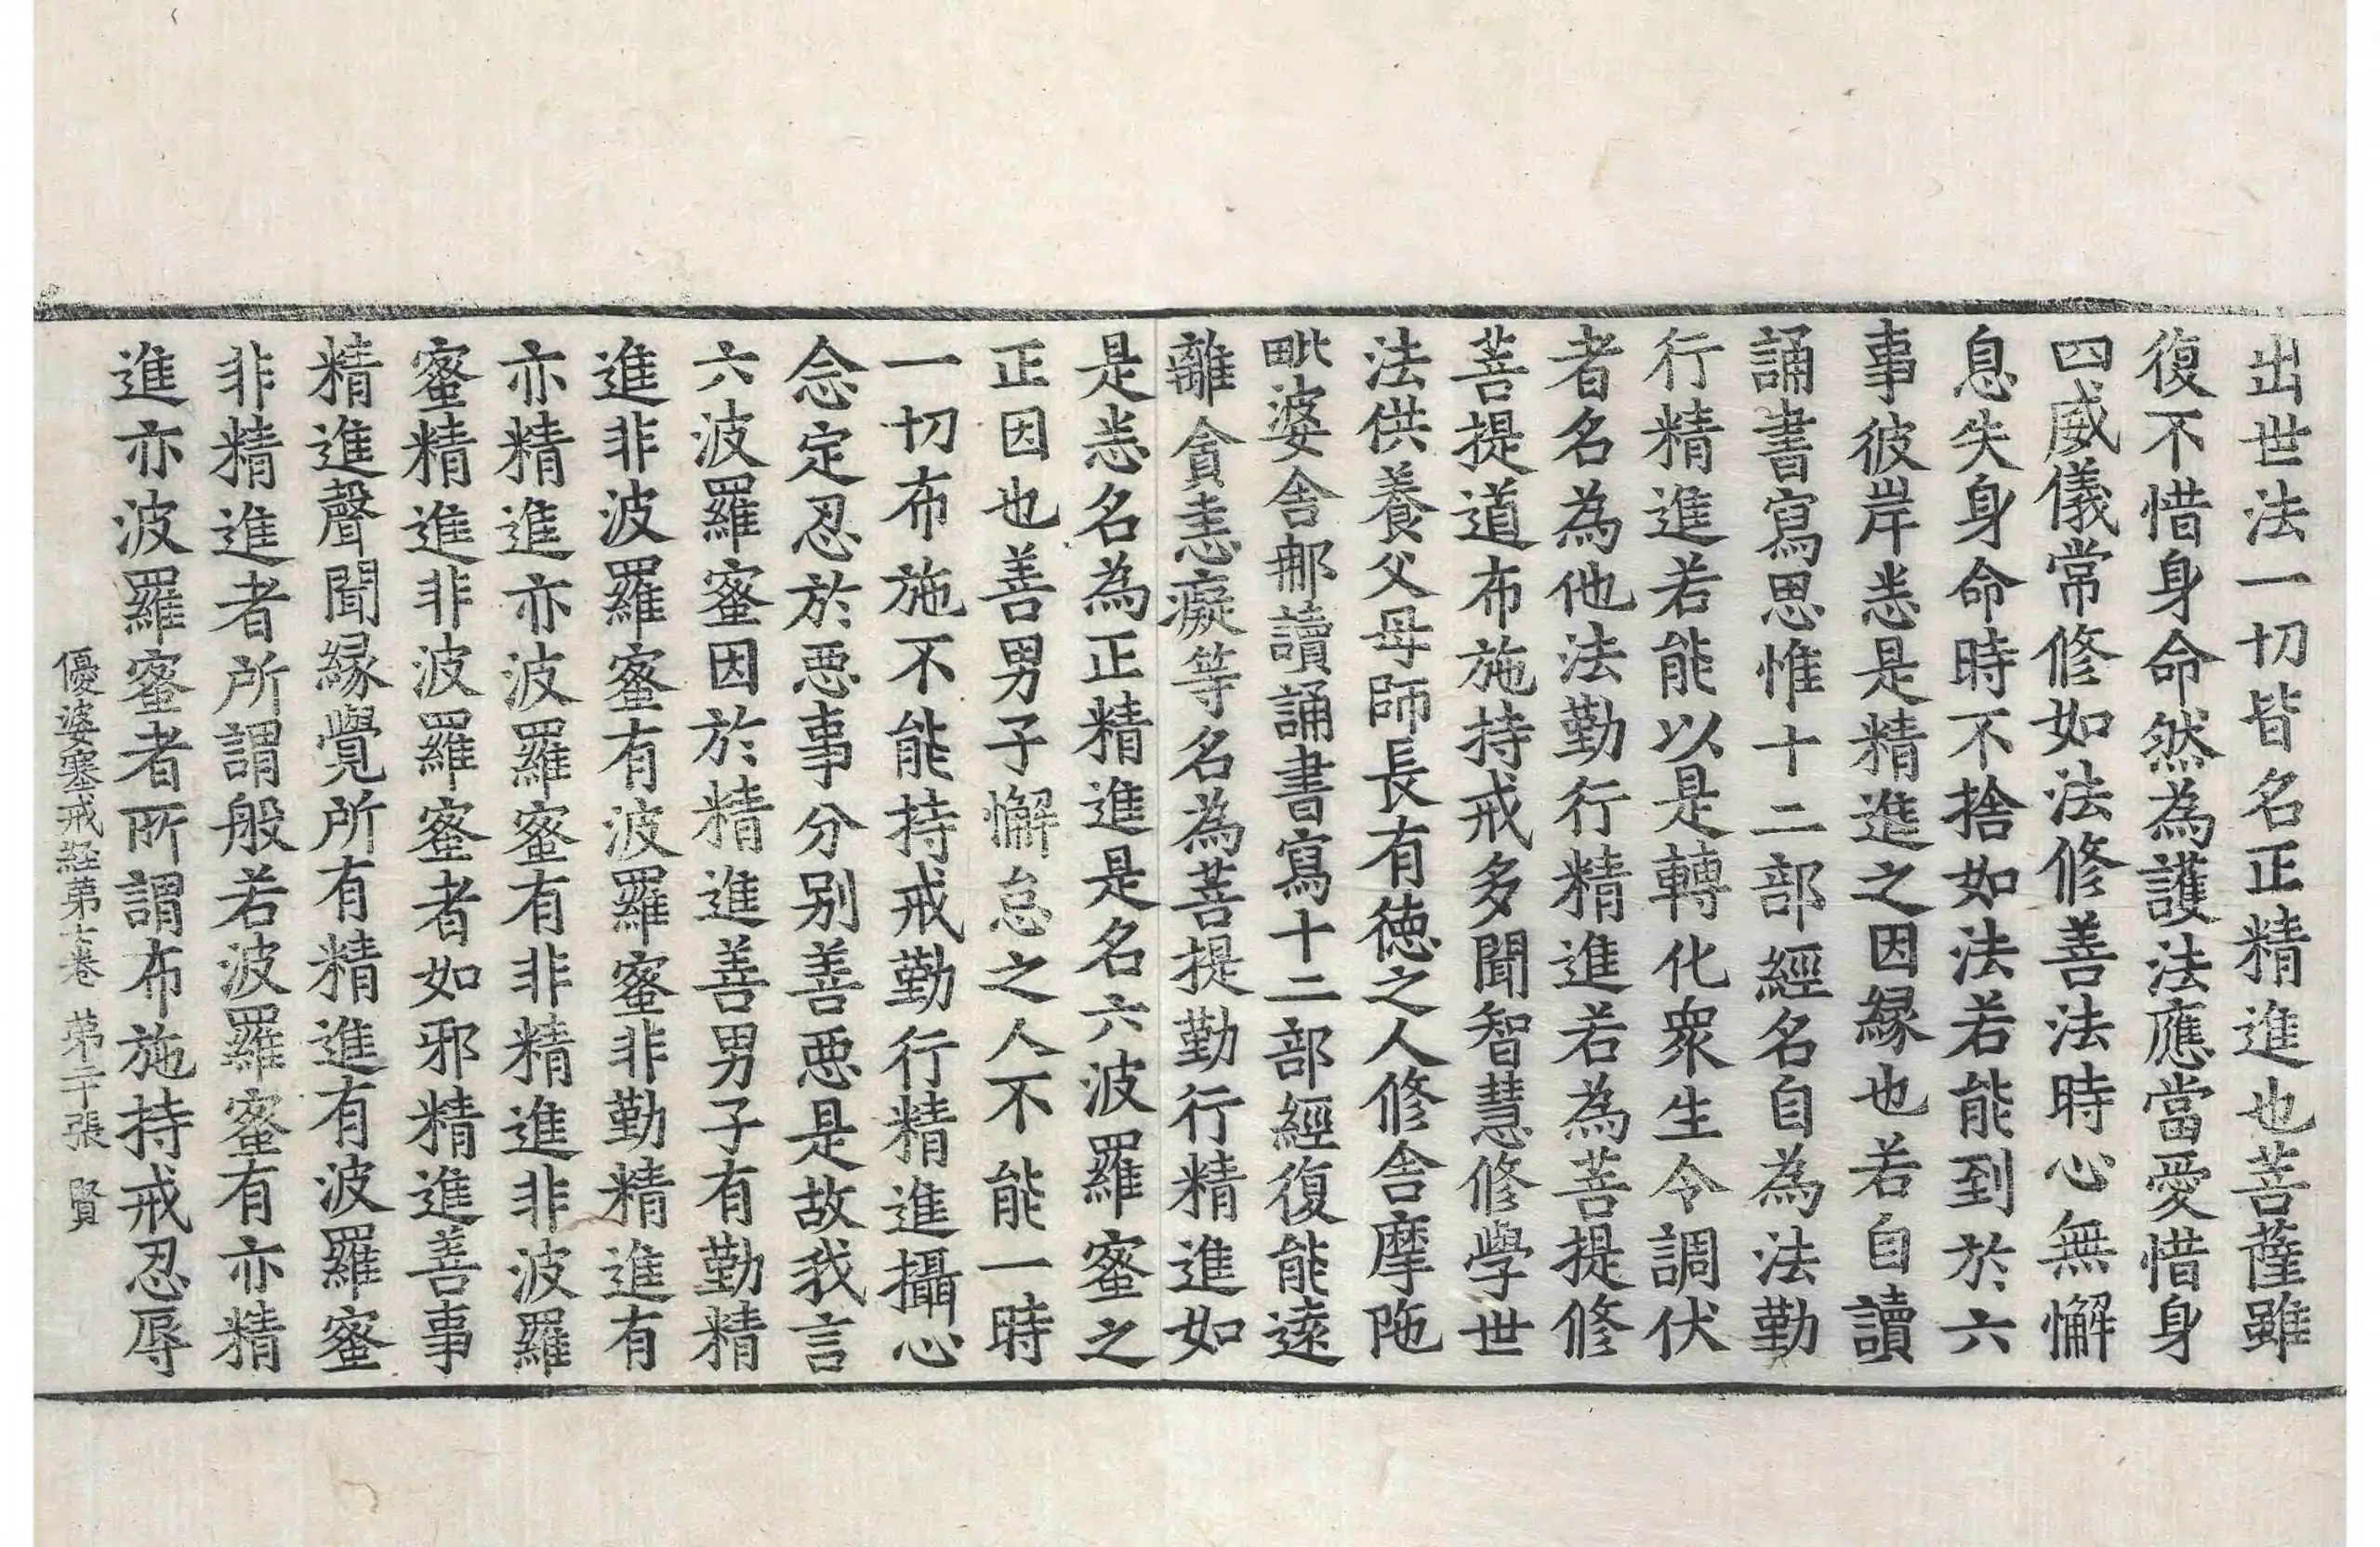 出世法一切皆名正精進也菩薩雖
復不惜身命然為護法應當愛惜身
四威儀常修如法修善法時心無懈
息失身命時不捨如法若能到於六
事彼岸恚是精進之因縁也若自讀
誦書寫思惟十二部經名自為法勤
行精進若能以是轉化衆生令調伏
者名為他法勤行精進若為菩提修
菩提道布施持戒多聞智慧修學世
法供養父母師長有徳之人修舎摩陁
毗婆舎那讀誦書寫十二部經復能遠
離貪恚癡等名為菩提勤行精進如
是恚名為正精進是名六波羅蜜之
正因也善男子懈怠之人不能一時
一切布施不能持戒勤行精進攝心
念定忍於惡事分别善惡是故我言
六波羅蜜因於精進善男子有勤精
進非波羅蜜有波羅蜜非勤精進有
亦精進亦波羅蜜有非精進非波羅
蜜精進非波羅蜜者如邪精進善事
精進聲聞縁覺所有精進有波羅蜜
非精進者所謂般若波羅蜜有亦精
進亦波羅蜜者所謂布施持戒忍辱
優婆塞戒經第七卷 第二十張 賢